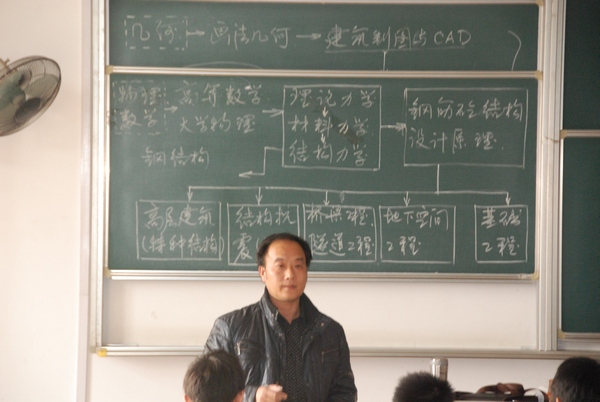 几何 → 画法几何 → 建筑制图与CAD
物理 数学 → 高等数学 大学物理 → 理论力学 材料力学 结构力学 → 钢筋砼结构 设计原理
钢结构
高层建筑 (特种结构)
结构抗震
桥梁工程 隧道工程
地下空间工程
基础工程